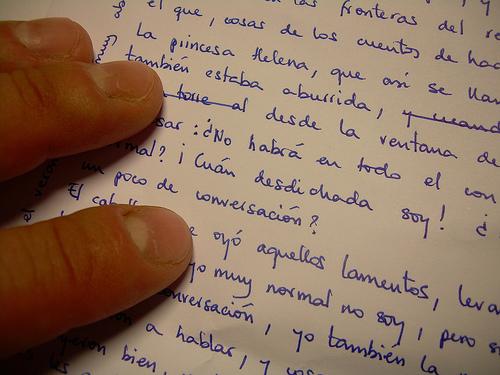 las fronteras del re
el que, cosas de los cuentos de hac
La princesa Helena, que así se llam
también estaba aburrida, y cuand
torre al desde la ventana de
sar: ¿No habrá en todo el con
mal? ¡Cuán desdichada soy! ¿
un poco de conversación?
El cab oyó aquellos lamentos, leva
yo muy normal no soy, pero s
nversación, yo también la
a hablar, y
bien,